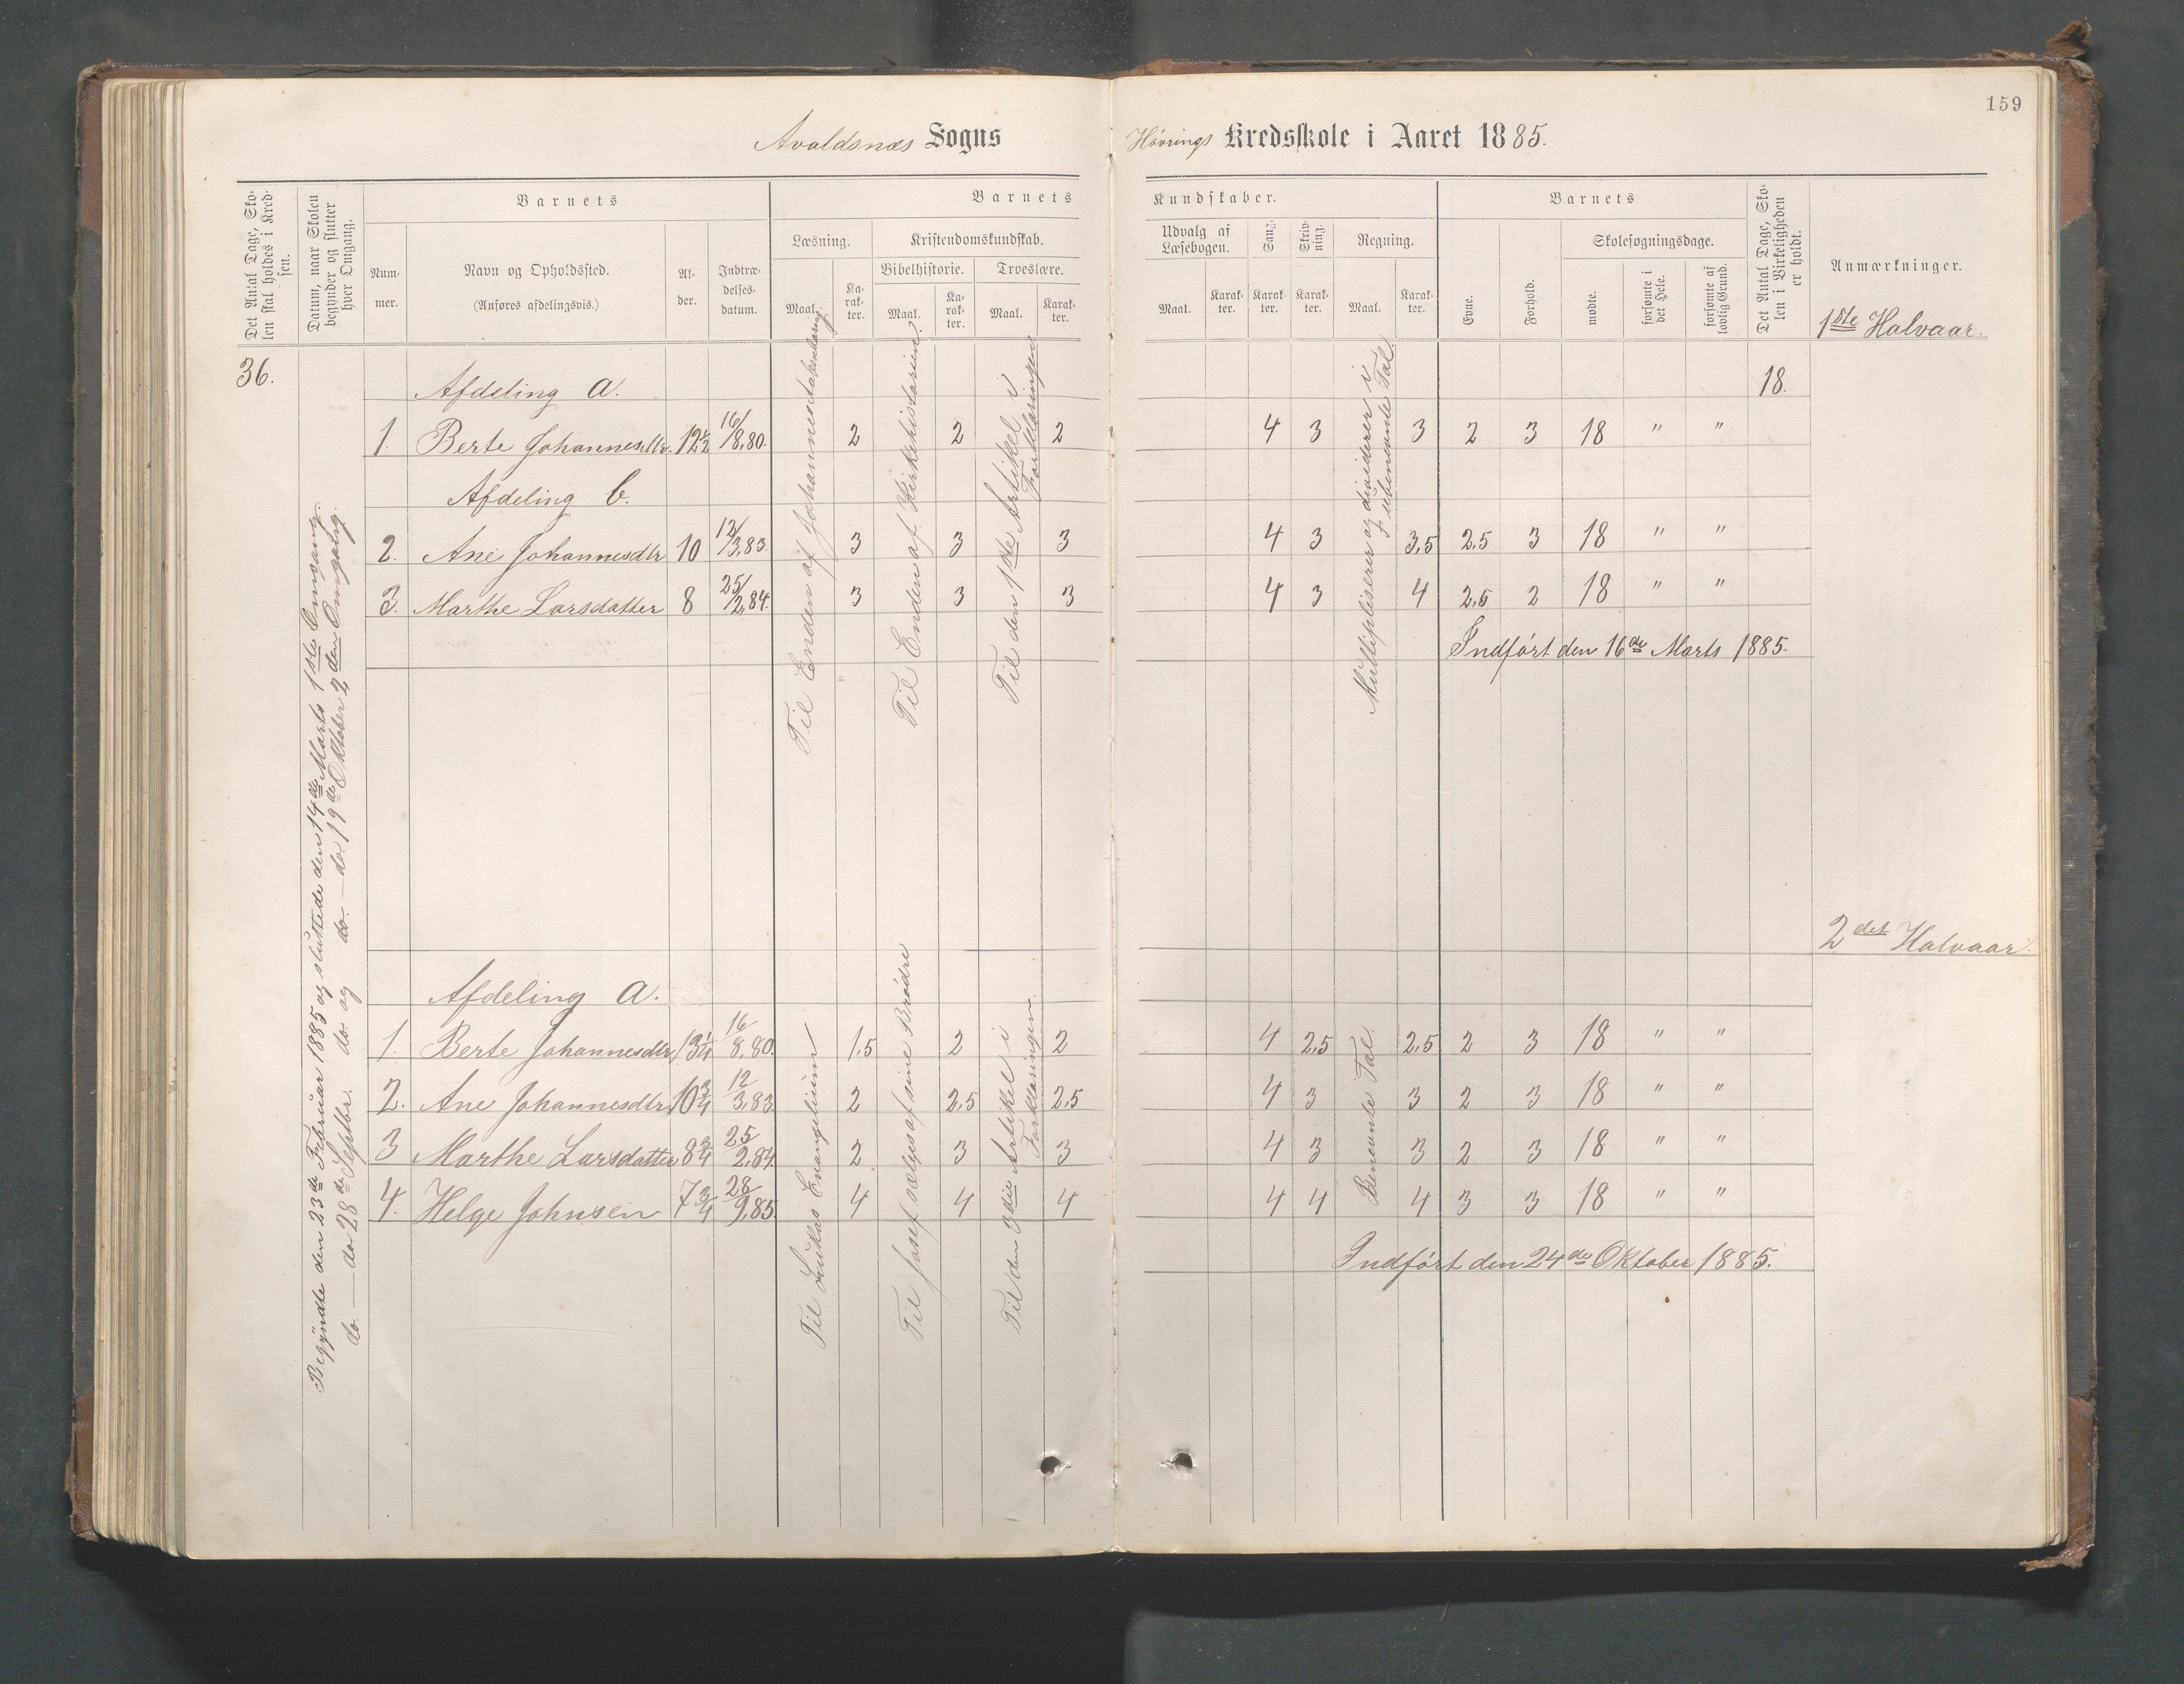 159
Avaldsnæs Sogns
Hövrings Kredsskole i Aaret 1885.
Det Antal Dage, Skolen skal holdes i Kredsen.
Datum, naar Skolen begynder og slutter hver Omgang.
Barnets
Nummer.
Navn og Opholdssted.
(Anføres afdelingsvis.)
Alder.
Indtrædelsesdatum.
Barnets
Kundskaber.
Læsning.
Maal.
Karakter.
Kristendomskundskab.
Bibelhistorie.
Maal.
Karakter.
Troeslære.
Maal.
Karakter.
Udvalg af Læsebogen.
Maal.
Karakter.
Sang.
Karakter.
Skrivning.
Karakter.
Regning.
Maal.
Karakter.
Barnets
Evne.
Forhold.
Skolesøgningsdage.
mødte.
forsømte i det Hele.
forsømte af lovlig Grund.
Det Antal Dage, Skolen i Virkeligheden er holdt.
Anmærkninger.
1ste Halvaar.
36.
Begyndte den 23de Februar 1885 og sluttede den 14de Marts 1ste Omgang.
do. — do 28de Septbr. do. og do. — do. 19de Oktober 2den Omgang.
Afdeling a.
18.
1. Berte Johannesdtr. 12½ 16/8.80. 2 2 2 4 3 3 2 3 18 " "
Afdeling b.
2. Ane Johannesdtr 10 12/3.83. 3 3 3 4 3 3,5 2,5 3 18 " "
3. Marthe Larsdatter 8 25/2.84. 3 3 3 4 3 4 2,5 2 18 " "
Til Enden af Johannes Aabenbaring.
Til Enden af Kirkehistorien.
Til den 1ste Artikel i Forklaringen
Multipliserer og dividerer i ubenævnte Tal
Indført den 16de Marts 1885.
2det Halvaar.
Afdeling a.
1. Berte Johannesdtr 13¼ 16/8.80. 1,5 2 2 4 2,5 2,5 2 3 18 " "
2. Ane Johannesdtr 10¾ 12/3.83. 2 2,5 2,5 4 3 3 2 3 18 " "
3 Marthe Larsdatter 8¾ 25/2.84. 2 3 3 4 3 3 2 3 18 " "
4. Helge Johnsen 7¾ 28/9.85. 4 4 4 4 4 4 3 3 18 " "
Til Lukas Evangelium
Til Josef sælges af sine Brødre
Til den 3die Artikel i Forklaringen
Benævnte Tal
Indført den 24de Oktober 1885.